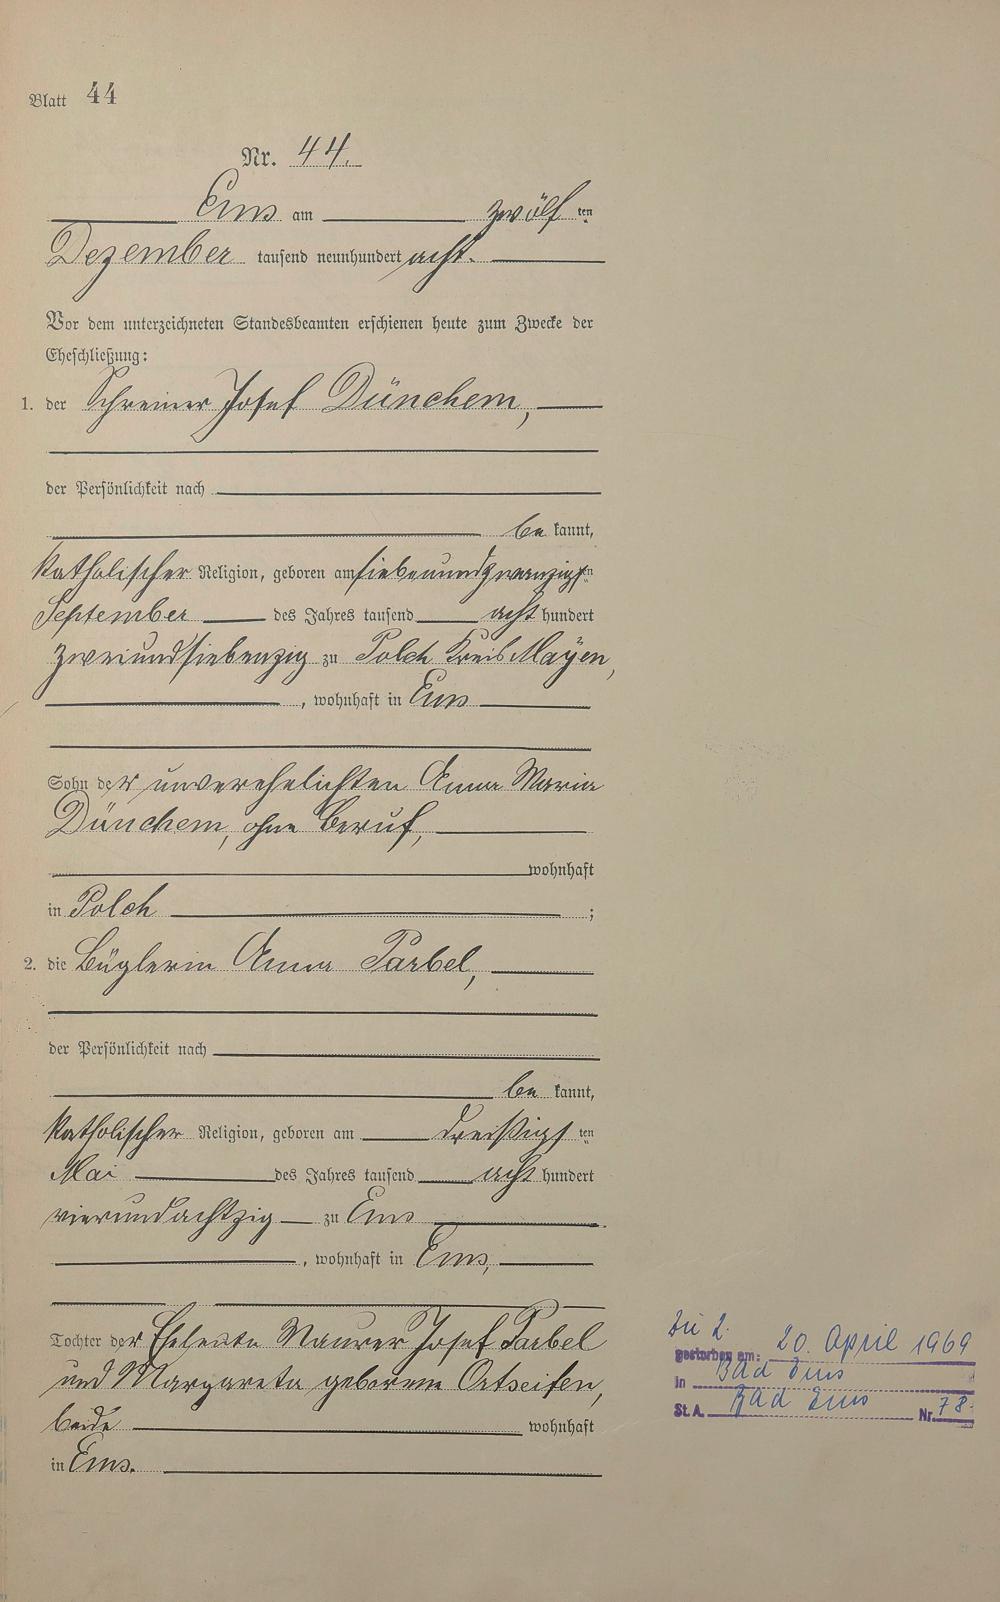 Blatt 44
Nr. 44.
Ems am zwölf ten
Dezember tausend neunhundert acht.
Vor dem unterzeichneten Standesbeamten erschienen heute zum Zwecke der
Eheschließung:
1. der Schreiner Josef Dünchem,
der Persönlichkeit nach
be kannt,
katholischer Religion, geboren am siebenundzwanzigsten
September des Jahres tausend acht hundert
zweiundsiebenzig zu Polch Kreis Mayen,
, wohnhaft in Ems
Sohn der unverehelichten Anna Maria
Dünchem, ohne Beruf,
wohnhaft
in Polch ;
2. die Büglerin Anna Parbel,
der Persönlichkeit nach
be kannt,
katholischer Religion, geboren am dreißigs ten
Mai des Jahres tausend acht hundert
vierundachtzig zu Ems
, wohnhaft in Ems,
Tochter der Eheleute Maurer Josef Parbel
und Margareta geborene Ortseifen,
beide wohnhaft
in Ems.
Die 2.
gestorben am: 20. April 1969
in Bad Ems
St.A. Bad Ems Nr. 78.